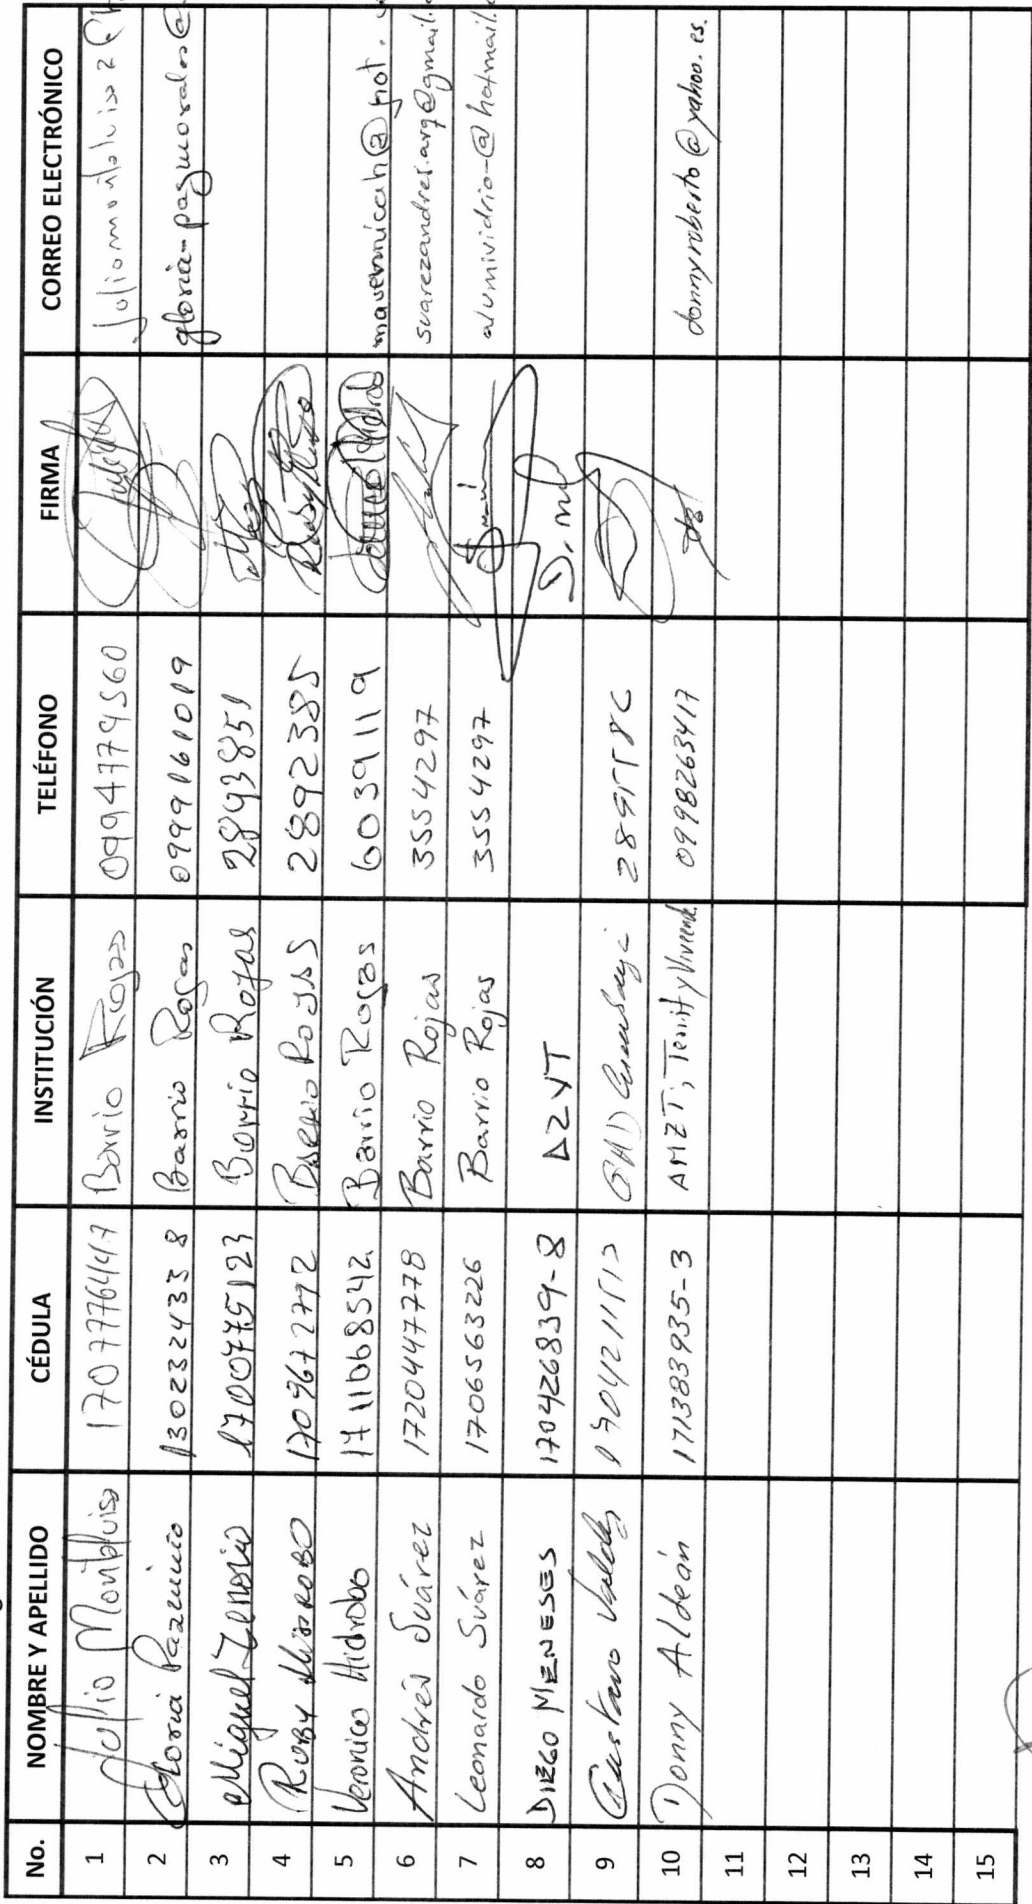 No. NOMBRE Y APELLIDO CÉDULA INSTITUCIÓN TELÉFONO FIRMA CORREO ELECTRÓNICO
1 Julio Montaluisa 1707776447 Barrio Rojas 0994779560
2 Gloria Pazmiño 1302324338 Barrio Rojas 0999161019
3 Miguel Tenorio 1700775123 Barrio Rojas 2893851
4 Ruby Hidrobo 1709672772 Barrio Rojas 2892385
5 Veronica Hidrobo 1711068542 Barrio Rojas 6039119
6 Andrés Suárez 1720447778 Barrio Rojas 3554297 suarezandres.arq@gmail.
7 Leonardo Suárez 1706563226 Barrio Rojas 3554297 alumividrio-@hotmail.
8 DIEGO MENESES 170426839-8 AZVT
9 Gustavo GAD
10 Donny Aldeán 171383935-3 AMZT, Territ y Vivienda. 0998263417 donnyroberto@yahoo.es.
11
12
13
14
15